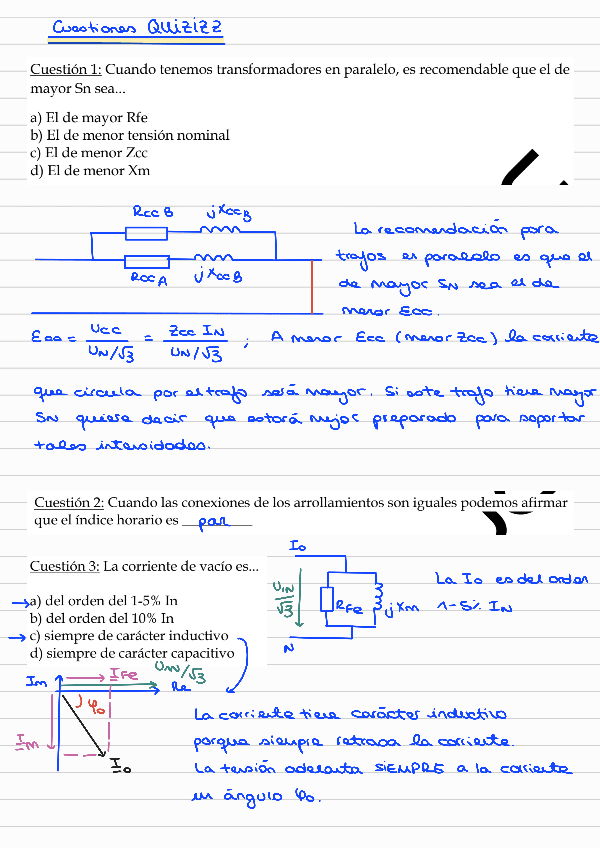 Cuestiones QUIZIZZ
Cuestión 1: Cuando tenemos transformadores en paralelo, es recomendable que el de
mayor Sn sea...
a) El de mayor Rfe
b) El de menor tensión nominal
c) El de menor Zcc
d) El de menor Xm
Rcc B jXccB
Rcc A jXccB
La recomendación para
trafos en paralelo es que el
de mayor SN sea el de
menor Ecc.
Ecc = Ucc / UN/√3 = Zcc IN / UN/√3 ; A menor Ecc (menor Zcc) la corriente
que circula por el trafo será mayor. Si este trafo tiene mayor
SN quiere decir que estará mejor preparado para soportar
tales intensidades.
Cuestión 2: Cuando las conexiones de los arrollamientos son iguales podemos afirmar
que el índice horario es par
Cuestión 3: La corriente de vacío es...
a) del orden del 1-5% In
b) del orden del 10% In
c) siempre de carácter inductivo
d) siempre de carácter capacitivo
Io
U1N/√3
RFe
jXm
N
La Io es del orden
1-5% IN
IFe
UIN/√3
Im
Re
φo
Im
Io
La corriente tiene carácter inductivo
porque siempre retrasa la corriente.
La tensión adelanta SIEMPRE a la corriente
un ángulo φo.